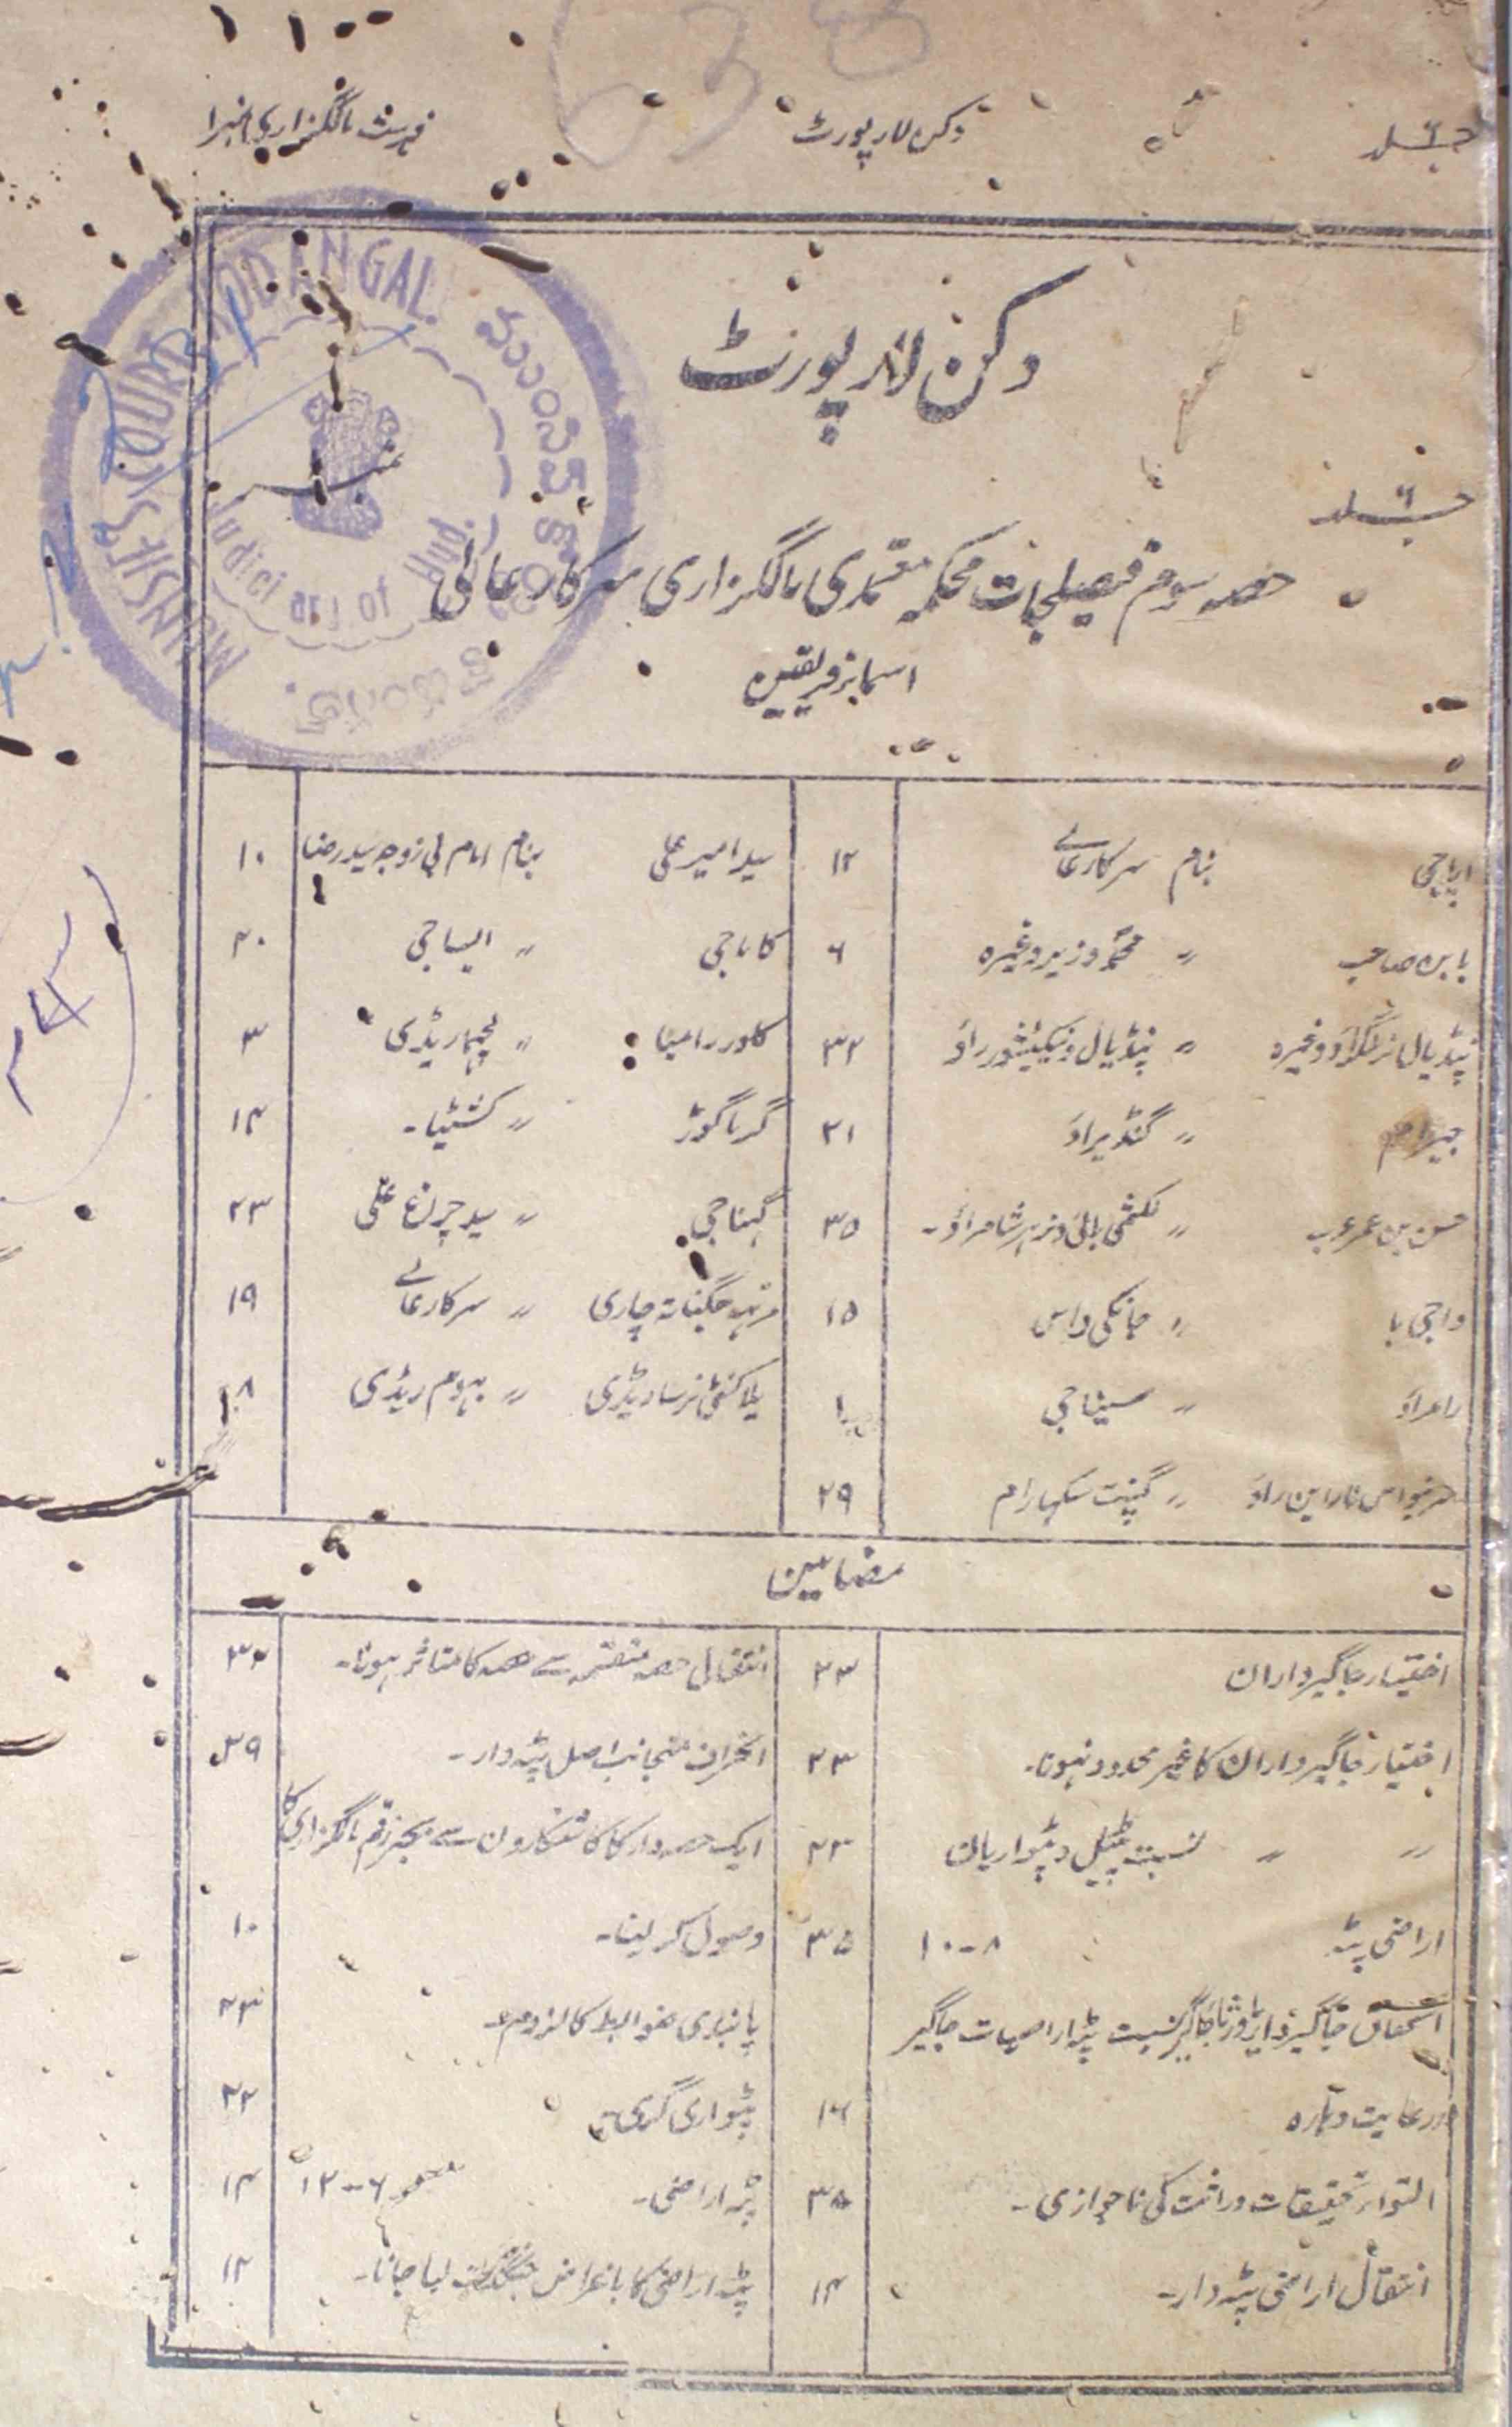 جلد ۶ دکن لا رپورٹ فہرست مالگزاری
دکن لا رپورٹ
جلد ۶
حصہ سوم فیصلجات محکمہ معتمدی مالگزاری سرکار عالی
اسمائے فریقین
MUNSIF'S COURT KODANGAL
اپاجی بنام سرکار عالی ۱۲
سید امیر علی بنام امام بی زوجہ سید رضا ۱۰
بابن صاحب 〃 محمد وزیر وغیرہ ۶
کاباجی 〃 ایساجی ۲۰
پنڈیال نرنگراؤ وغیرہ 〃 پنڈیال ونکٹیشور راؤ ۳۲
کلور رامینا 〃 لچھما ریڈی ۳
جیرام 〃 گنڈیراؤ ۲۱
گرناگوڑ 〃 کشٹیا۔ ۱۴
حسن بن عمر عرب 〃 لکشمی بائی ۳۵
گہناجی 〃 سید چراغ علی ۲۳
واجی با 〃 جانکی داس ۱۵
جگناتھ چاری 〃 سرکار عالی ۱۹
رامراؤ 〃 سیتاجی ۱
نرسا ریڈی 〃 ریڈی ۸
سرنیواس ناراین راؤ 〃 گنپت سکہارام ۲۹
مضامین
اختیار جاگیرداران ۲۳
انتقال حصہ منقسمہ سے حصہ کا متاثر ہونا۔ ۳۲
اختیار جاگیرداران کا غیر محدود نہونا۔ ۲۳
انحراف منجانب اصل پٹہ دار۔ ۲۹
〃 〃 نسبت پٹیل و پٹواریان ۲۳
ایک حصہ دار کا کاشتکارون سے بجبر رقم مالگزاری کا
اراضی پٹہ ۸-۱۰ ۳۵
وصول کرلینا۔ ۱۰
استحقاق جاگیردار نسبت پٹہ اراضیات جاگیر
پابندی ضوابط کا لزوم۔ ۲۳
ورعایت دہارہ ۱۶
پٹواری گری ۳۲
التوائے تحقیقات وراثت کی ناجوازی۔ ۳۵
پٹہ اراضی۔ ۶-۱۲ ۱۴
انتقال اراضی پٹہ دار۔ ۱۴
پٹہ اراضی کا باغراض جنگلات لیا جانا۔ ۱۲